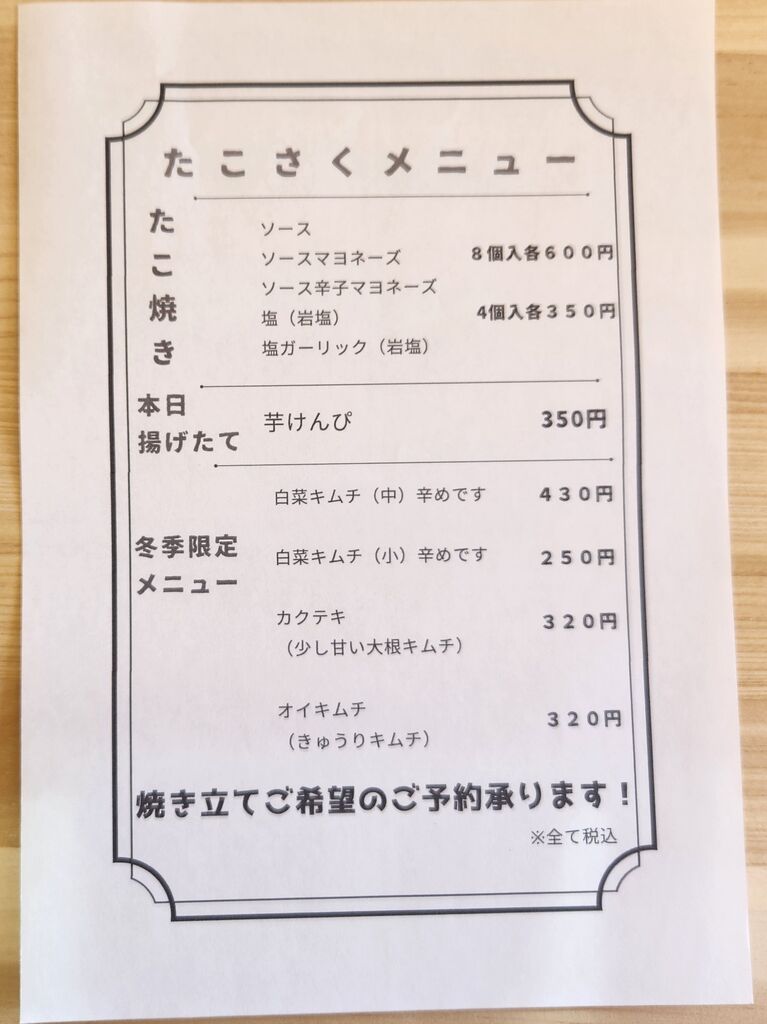 たこさくメニュー
たこ焼き
ソース
ソースマヨネーズ
ソース辛子マヨネーズ
塩（岩塩）
塩ガーリック（岩塩）
８個入各６００円
4個入各３５０円
本日
揚げたて
芋けんぴ
350円
冬季限定
メニュー
白菜キムチ（中）辛めです
４３０円
白菜キムチ（小）辛めです
２５０円
カクテキ
（少し甘い大根キムチ）
３２０円
オイキムチ
（きゅうりキムチ）
３２０円
焼き立てご希望のご予約承ります！
※全て税込